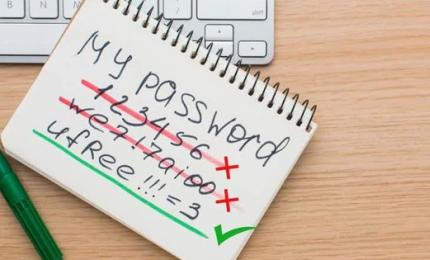 My password
123456
we7.!7a!oo
ufRee!!!=3